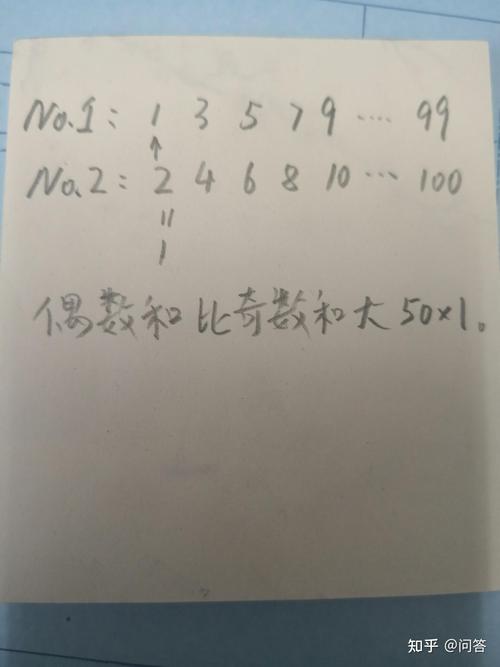 No.1: 1 3 5 7 9 .... 99
↑
No.2: 2 4 6 8 10 ... 100
=
1
偶数和比奇数和大50×1。
知乎 @问答